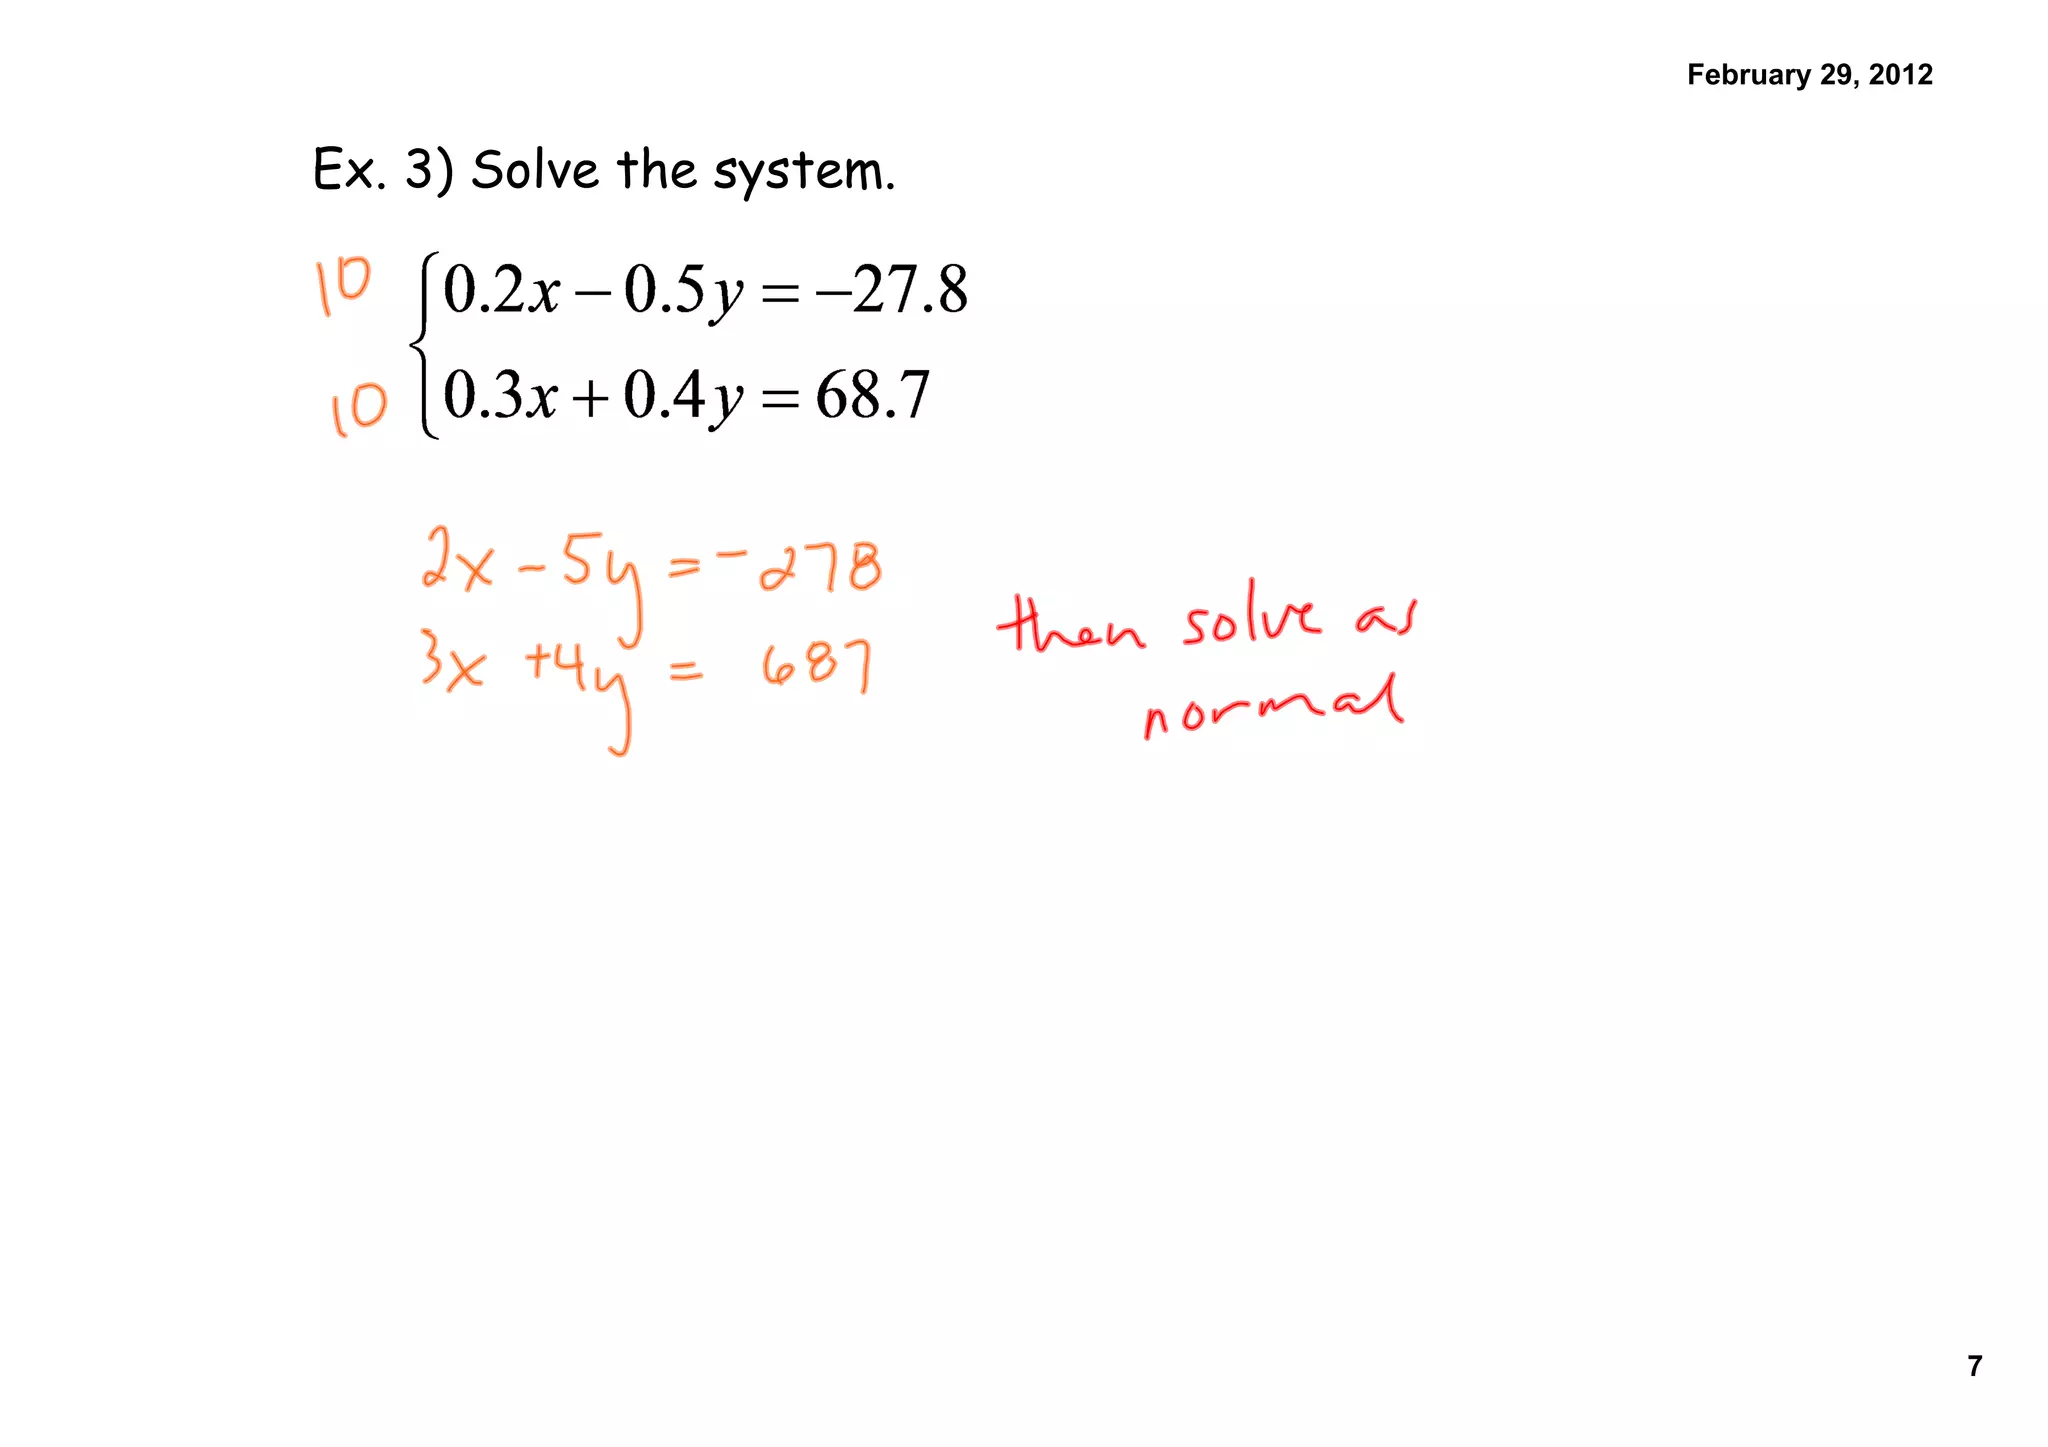 February 29, 2012
Ex. 3) Solve the system.
10 0.2x − 0.5y = −27.8
10 0.3x + 0.4y = 68.7
2x - 5y = -278
3x + 4y = 687
then solve as
normal
7